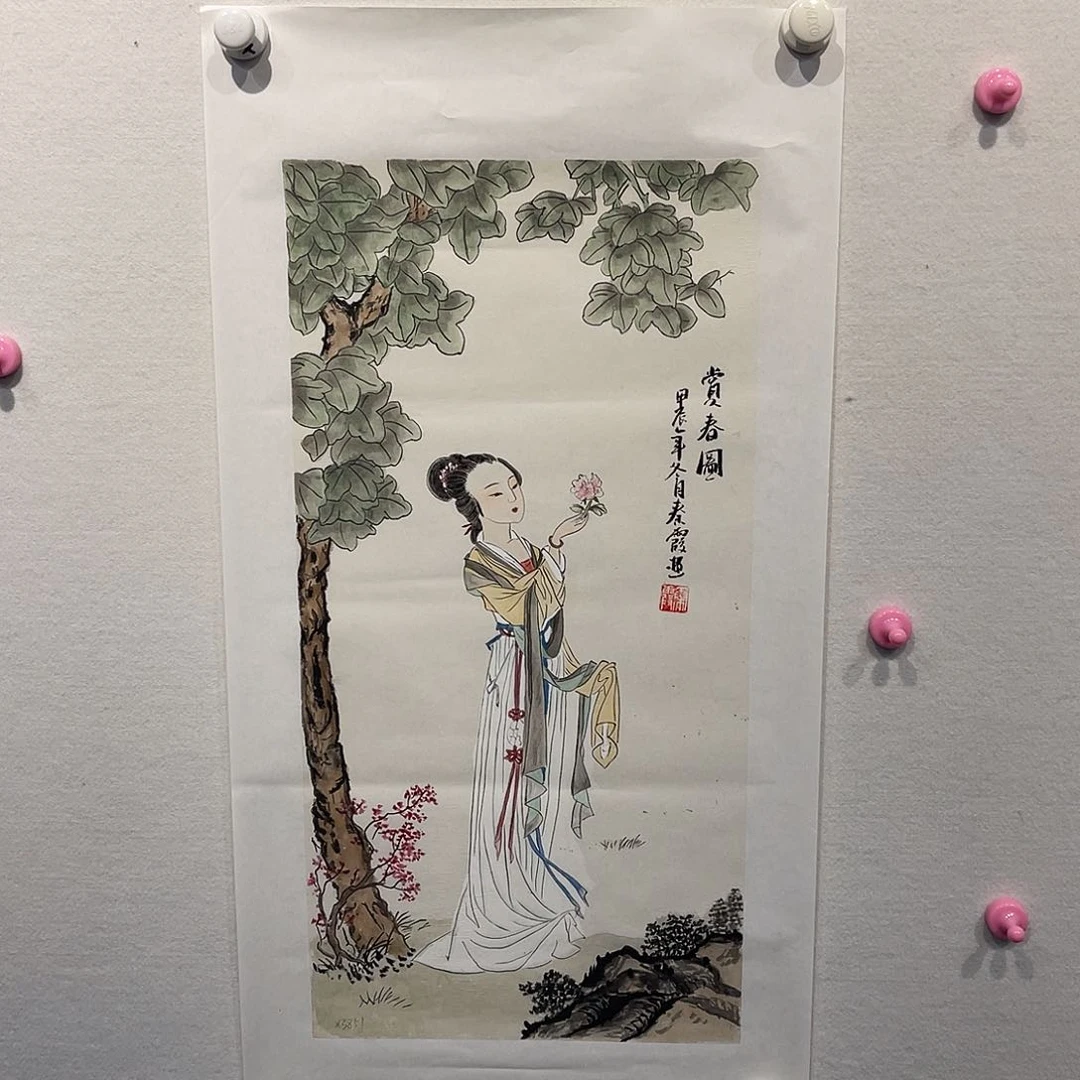 賞春圖
甲辰年冬月春霞
x3851